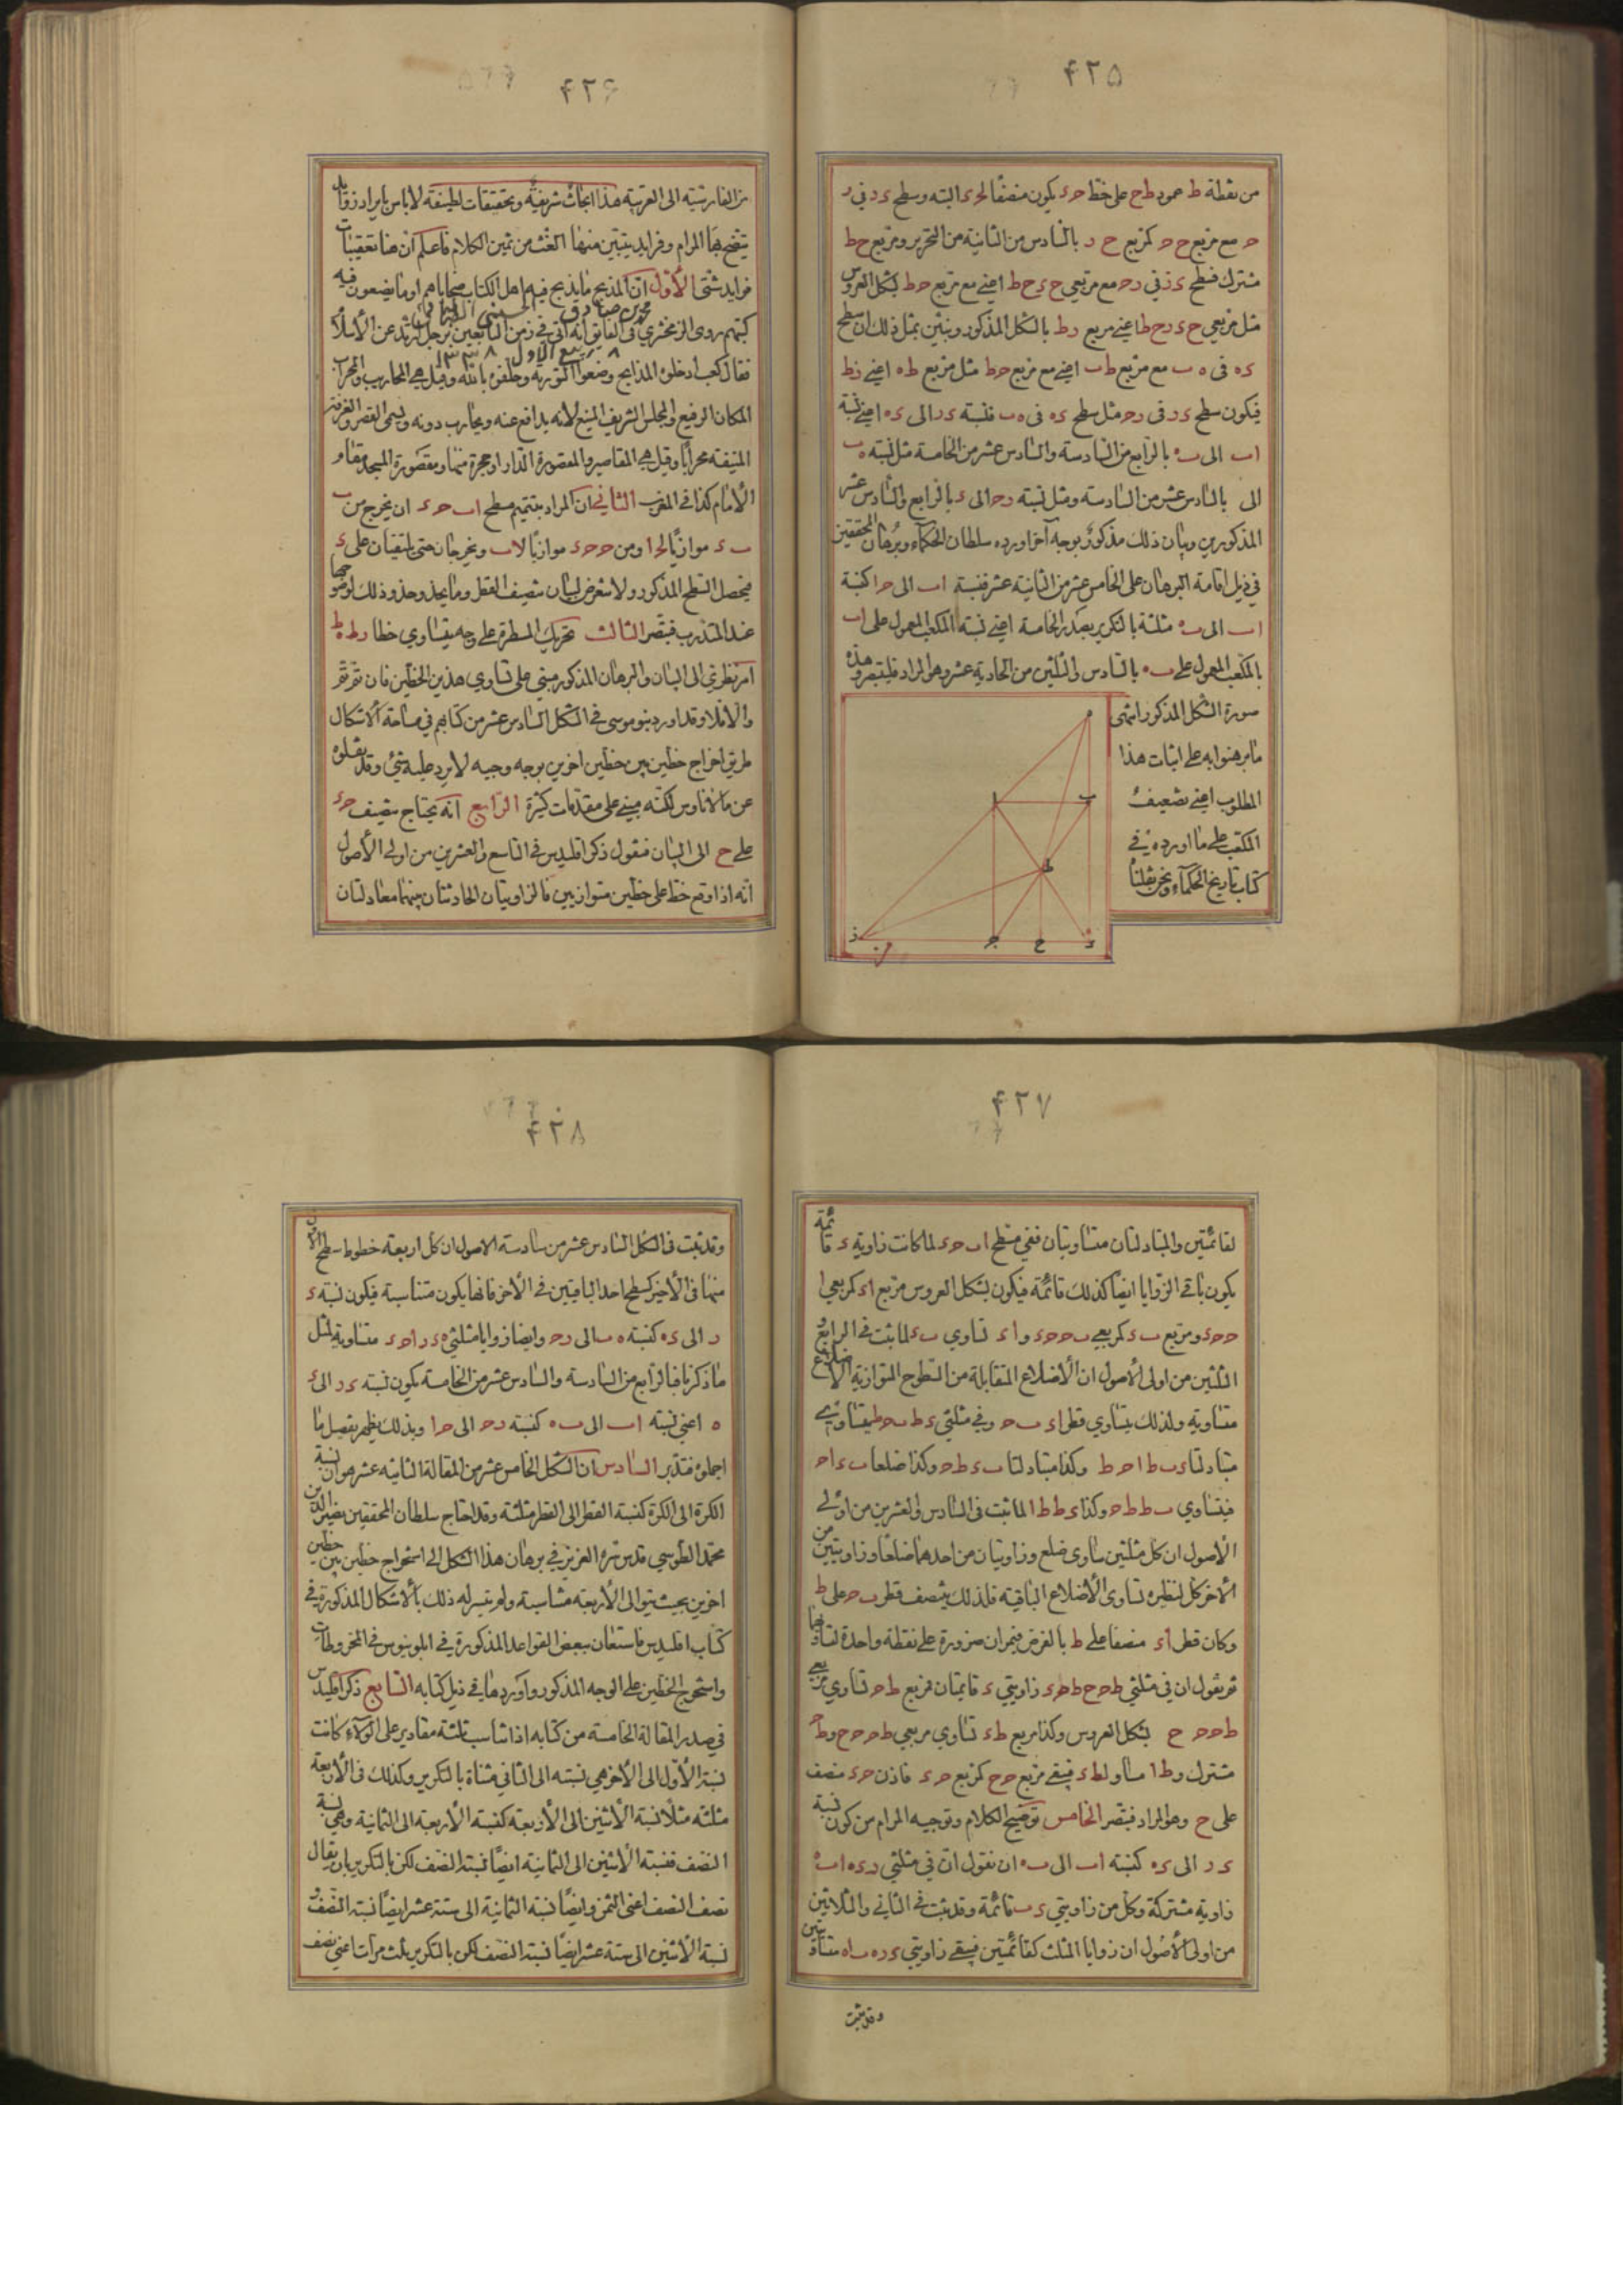 ۴۲۵
من نقطة ط عمود ط ح على خط حء يكون منصفا لحء البتة وسطح ء ر في ر
ح مع مربع ح ح كمربع ح ر بالسادس من الثانية من التحرير ومربع ح ط
مشترك فسطح ء ر في رح مع مربعي ح ء ح ط اعني مع مربع ح ط بشكل العروس
مثل مربعي ح ء رح ط اعني مربع رط بالشكل المذكور ونبين بمثل ذلك ان سطح
ء ه فى ه ب مع مربع ط ب اعني مع مربع ح ط مثل مربع ط ه اعني ر ط
فيكون سطح ء ر فى رح مثل سطح ء ه فى ه ب فنسبة ء ر الى ء ه اعني نسبة
اب الى ب ه بالرابع من السادسة والسادس عشر من الخامسة مثل نسبة ه ب
الى بالسادس عشر من السادسة ومثل نسبة رح الى بالرابع والسادس عشر
المذكورين وبيان ذلك مذكور بوجه آخر اورده سلطان الحكماء وبرهان المحققين
في ذيل اقامة البرهان على الخامس عشر من الثانية عشر فنسبة اب الى ح ا كنسبة
اب الى ب ه مثلثة بالتكرير بصدر الخامسة اعني نسبة المكعب المعمول على اب
بالمكعب المعمول على ب ه بالسادس والثلثين من الحادية عشر وهو المراد فليتبصر وهذه
صورة الشكل المذكور انتهى
ما برهنوا به على اثبات هذا
المطلوب اعني تضعيف
المكعب على ما اورده في
كتاب تاريخ الحكماء ونحن نقلنا
ه
ا
ب
ط
ز
ح
ء
۴۲۶
من الفارسية الى العربية هذا ابحاث شريفة وتحقيقات لطيفة لا باس بايراد
يتضح بها المرام وفرايد يتبين منها الغث من ثمين الكلام فاعلم ان هنا تعقيبات
فرايد شتى الأول ان المذبح ما يذبح فيه اهل الكتاب ضحاياهم او ما يضعون فيه
محمد بن صادق الحسيني الطباطبائي
كتبهم روى الزمخشري فى الفايق انه اتي في زمن التابعين برجل ارتد عن الأسلام
٨ ربيع الاول
فقال كعب ادخلوه المذابح وضعوا التورية وحلفوه بالله وقيل هي المحاريب والمحراب
المكان الرفيع والمجلس الشريف المنيع لأنه يدافع عنه ويحارب دونه ويسمى القصر والغرفة
المنيفة محرابا وقيل هي المقاصير والمقصورة الدار او حجرة منها ومقصورة المسجد مقام
الأمام كذا في المغرب الثاني ان المراد بتتميم سطح اب حء ان يخرج من ب
ب ء موازيا لحا ومن ح حء موازيا لاب ويخرجان حتى يلتقيان على ء
فيحصل السطح المذكور ولا نتعرض لبيان تنصيف القطر وما يحذو حذو ذلك لوضوحها
عند المتدرب فتبصر الثالث تحريك المسطرة على وجه يتساوي خطا رط ه ط
امر نظري الى البيان والبرهان المذكور مبني على تساوي هذين الخطين فان تم تم
والا فلا وقد اورد بنو موسى في الشكل السادس عشر من كتابهم في مساحة الاشكال
طريق اخراج خطين بين خطين اخرين بوجه وجيه لا يرد عليه شئ وقد نقلوه
عن مانالاوس لكنه مبني على مقدمات كثيرة الرابع انه يحتاج تنصيف حء
على ح الى البيان فنقول ذكر اقليدس في التاسع والعشرين من اولى الأصول
انه اذا وقع خط على خطين متوازيين فالزاويتان الحادثتان بينهما معادلتان
۴۲۷
لقائمتين والمتبادلتان متساويتان ففي سطح اب حء لما كانت زاوية ء قائمة
يكون باقي الزوايا ايضا كذلك قائمة فيكون بشكل العروس مربع اء كمربعي ا
ح حء ومربع ب ح كمربعي ب ء حء و اء تساوي ب ح لما ثبت في الرابع و
الثلثين من اولى الأصول ان الأضلاع المتقابلة من السطوح المتوازية الأضلاع
متساوية ولذلك يتساوي قطرا اء ب ح وفي مثلثي ء ط ب ح ط ا يتساوي
متبادلتا ء ب ط ا ح ط وكذا متبادلتا ب ء ط ح وكذا ضلعا ب ء اح
فيتساوي ب ط ط ح وكذا ء ط ط ا لما ثبت فى السادس والعشرين من اولى
الاصول ان كل مثلثين يساوى ضلع وزاويتان من احدهما ضلعا وزاويتين من
الأخر كل لنظيره تساوى الأضلاع الباقية فلذلك ينتصف قطر ب ح على ط
وكان قطر اء منصفا على ط بالفرض فيمران ضرورة على نقطة واحدة لتساويهما
ثم نقول ان في مثلثي ط ح ح ط ح ء زاويتي ء قايمتان فمربع ط ح تساوي مربعي
ط ح ح ح بشكل العروس وكذا مربع ط ء تساوي مربعي ط ح ح ء و ط ح
مشترك و ط ا مساو لط ء فيبقى مربع ح ح كمربع ح ء فاذن حء منصف
على ح وهو المراد فتبصر الخامس توضيح الكلام وتوجيه المرام من كون نسبة
ء ر الى ء ه كنسبة اب الى ب ه ان نقول ان في مثلثي رء ه اب ه
زاوية مشتركة وكل من زاويتي ء ب قائمة وقد ثبت في الثاني والثلاثين
من اولى الأصول ان زوايا المثلث كقائمتين فيبقى زاويتي ء ر ه ب اه متساويتين
وقد ثبت
۴۲۸
وقد ثبت فى الشكل السادس عشر من سادسة الاصول ان كل اربعة خطوط سطح الأول
منها فى الأخير كسطح احد الباقيين في الأخر فانها يكون متناسبة فيكون نسبة ء
ر الى ء ه كنسبة ه ب الى رح وايضا زوايا مثلثي ه ء ر ا ح ر متساوية لمثل
ما ذكرنا فبالرابع من السادسة والسادس عشر من الخامسة يكون نسبة ء ر الى ء
ه اعني نسبة اب الى ب ه كنسبة رح الى ح ا وبذلك يظهر تفصيل ما
اجملوه فتدبر السادس ان الشكل الخامس عشر من المقالة الثانية عشر هو ان نسبة
الكرة الى الكرة كنسبة القطر الى القطر مثلثة وقد احتاج سلطان المحققين نصير الدين
محمد الطوسي قدس سره العزيز في برهان هذا الشكل الى استخراج خطين بين خطين
اخرين بحيث يتوالى الأربعة متناسبة ولم يتيسر له ذلك بالاشكال المذكورة في
كتاب اقليدس فاستعان ببعض القواعد المذكورة في ابلونيوس في المخروطات
واستخرج الخطين على الوجه المذكور واوردها في ذيل كتابه السابع ذكر اقليدس
في صدر المقالة الخامسة من كتابه اذا تناسب ثلثة مقادير على الولاء كانت
نسبة الأول الى الأخر هي نسبته الى الثاني مثناة بالتكرير وكذلك فى الأربعة
مثلثة مثلا نسبة الأثنين الى الأربعة كنسبة الأربعة الى الثمانية وهي نسبة
النصف فنسبة الأثنين الى الثمانية ايضا نسبة النصف لكن بالتكرير بان يقال
نصف النصف اعني الثمن وايضا نسبة الثمانية الى ستة عشر ايضا نسبة النصف و
نسبة الأثنين الى ستة عشر ايضا نسبة النصف لكن بالتكرير ثلث مرات اعني نصف